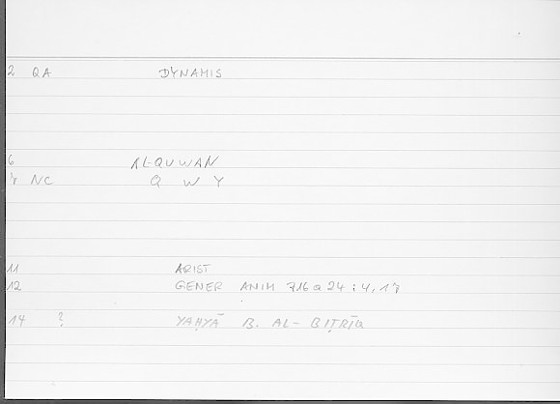 2 QA DYNAMIS
6 AL-QUWAN
NC Q W Y
11 ARIST
12 GENER ANIM 716a24 : 4,17
14 ? YAḤYĀ B. AL-BIṬRĪQ